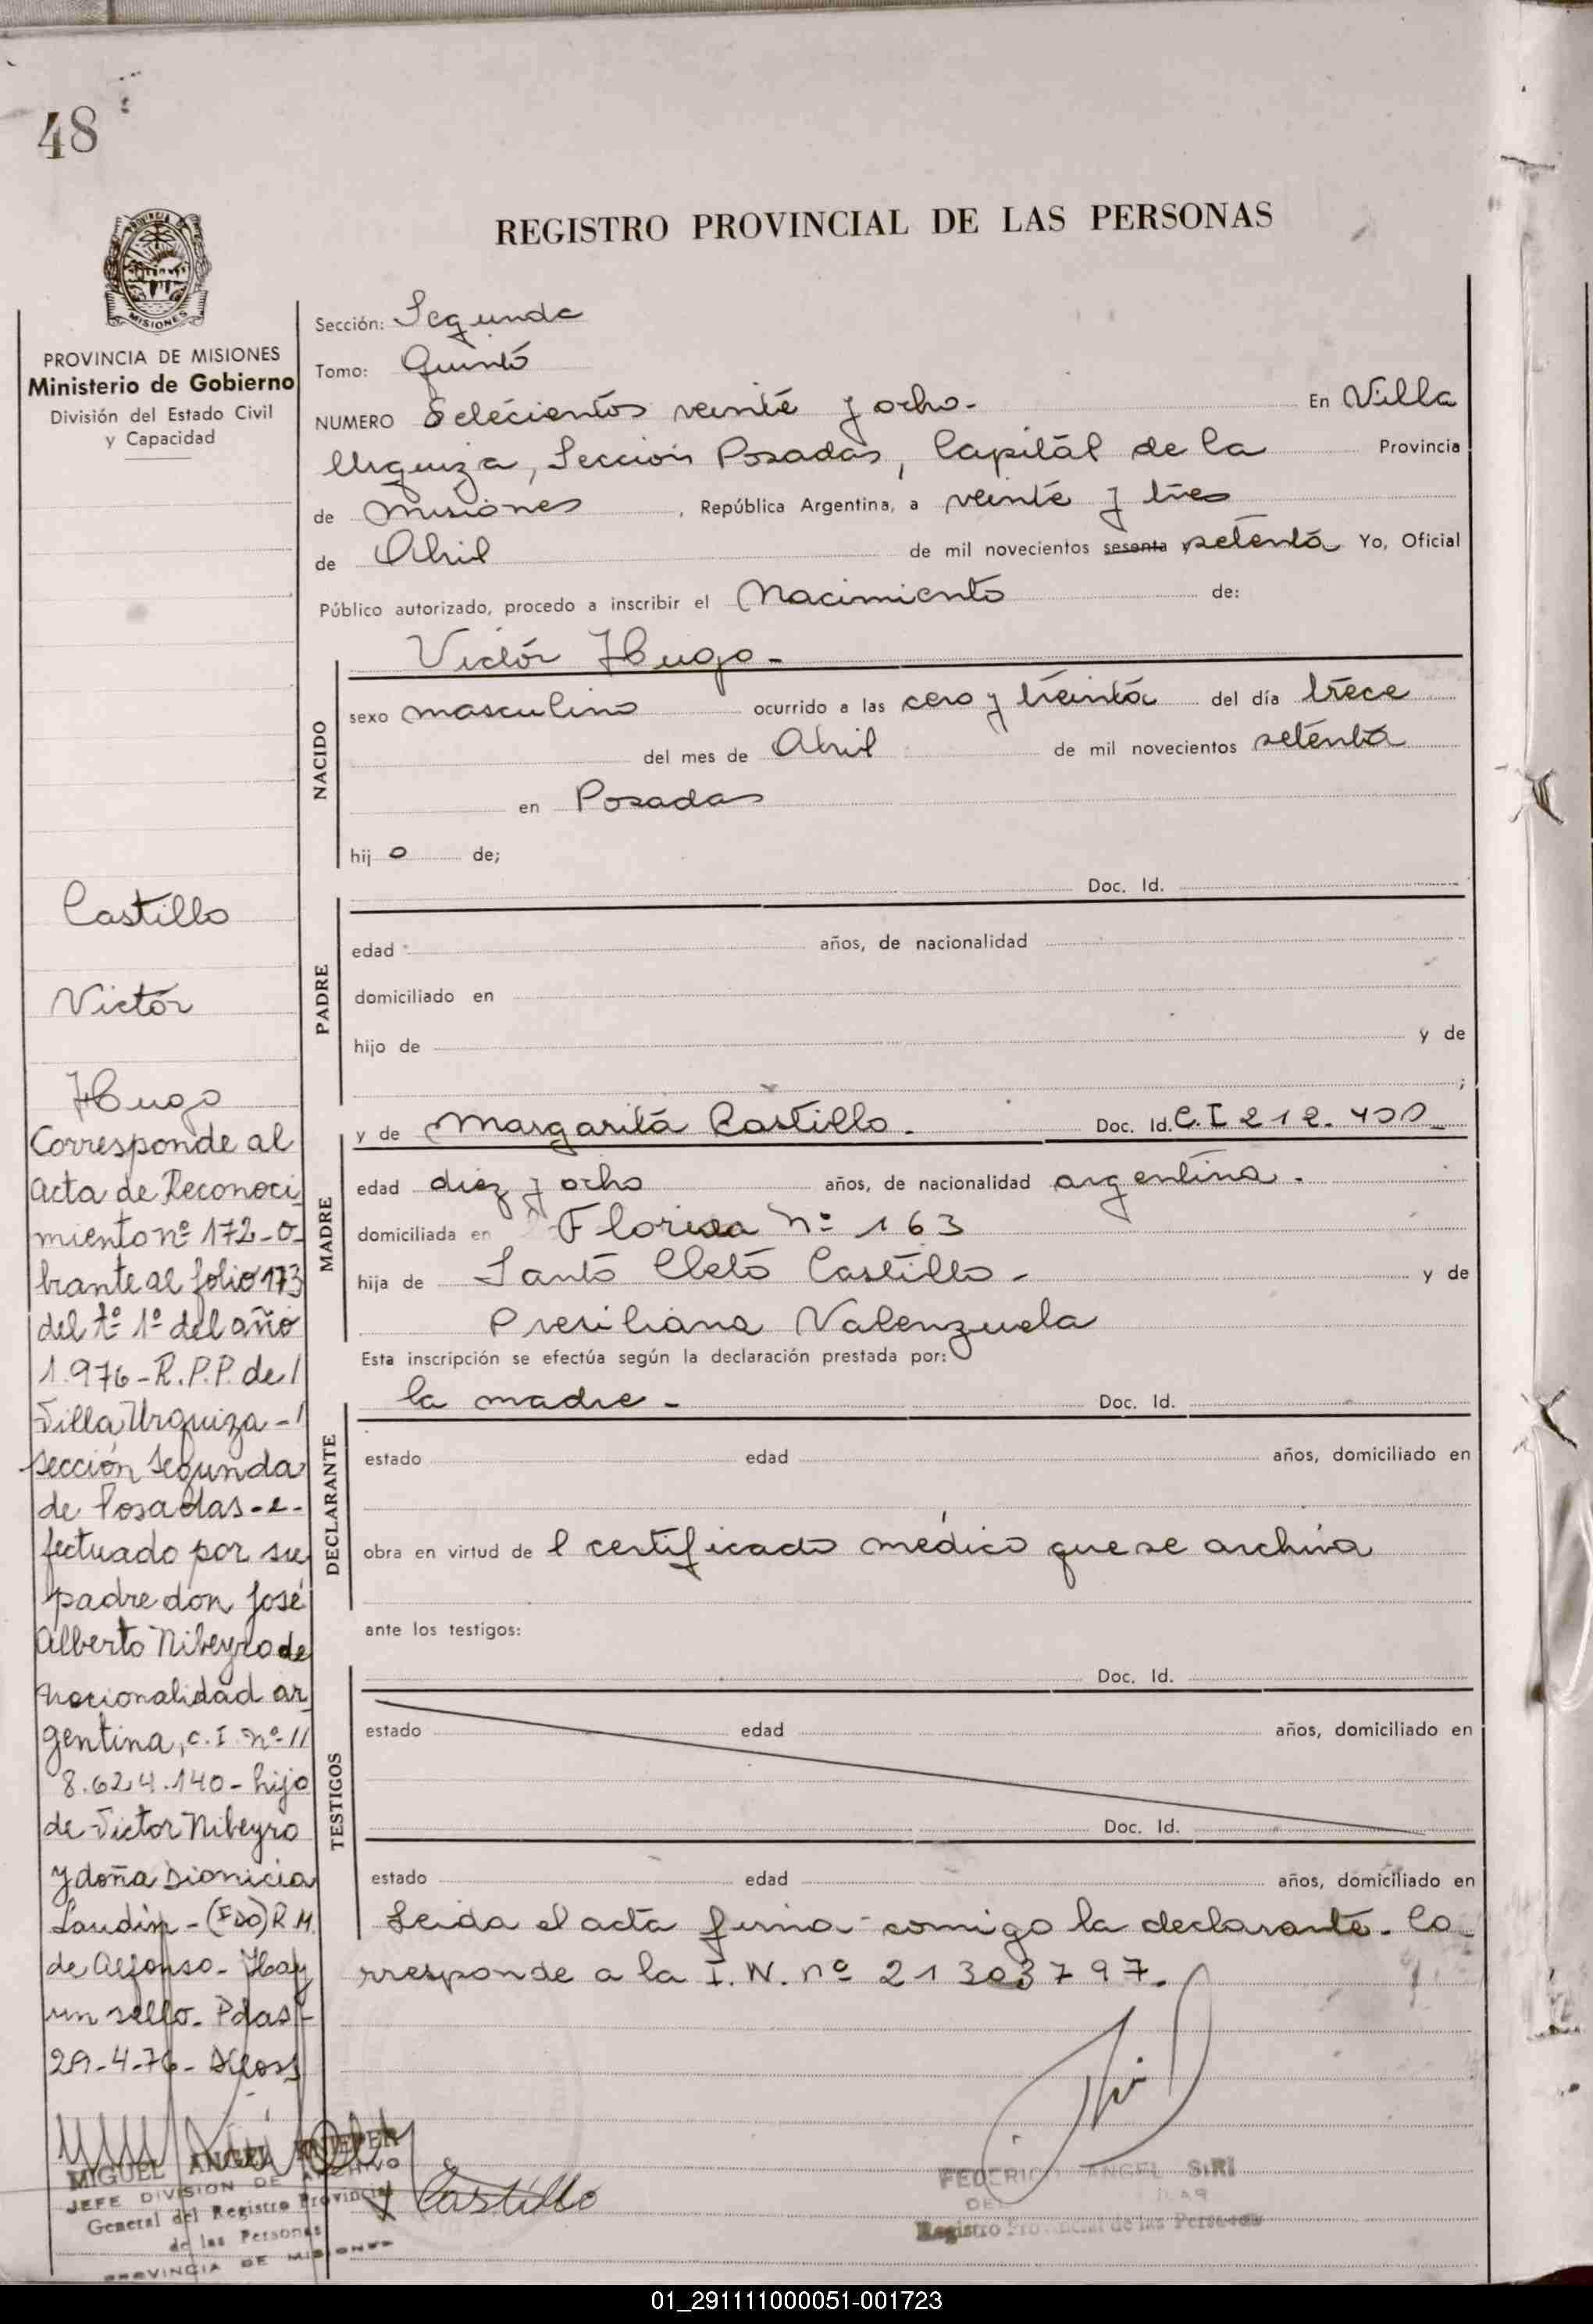 48
REGISTRO PROVINCIAL DE LAS PERSONAS
PROVINCIA DE MISIONES
Ministerio de Gobierno
División del Estado Civil
y Capacidad
Castillo
Victor
Hugo
Corresponde al
acta de Reconoci
miento nº 172-o-
brante al folio 173
del tº 1º del año
1.976-R.P.P. de /
Villa Urquiza - /
sección segunda
de Posadas - e-
fectuado por su
padre don José
Alberto Nibeyro de
nacionalidad ar
gentina, c.I. nº //
8.624.140 - hijo
de Victor Nibeyro
y doña Dionicia
- (FDO) R.M.
de Alfonso - Hay
un sello. Pdas -
29-4-76-
MIGUEL ANGEL
JEFE DIVISION DE ARCHIVO
General del Registro Provincial
de las Personas
PROVINCIA DE MISIONES
Sección: Segunda
Tomo: Quinto
NUMERO Setecientos veinte y ocho- En Villa
Urquiza, Sección Posadas, Capital de la Provincia
de Misiones, República Argentina, a veinte y tres
de Abril de mil novecientos sesenta setenta Yo, Oficial
Público autorizado, procedo a inscribir el Nacimiento de:
Victor Hugo-
NACIDO
sexo masculino ocurrido a las cero y treinta del día trece
del mes de Abril de mil novecientos setenta
en Posadas
hijo de;
Doc. Id.
PADRE
edad años, de nacionalidad
domiciliado en
hijo de y de
;
MADRE
y de Margarita Castillo. Doc. Id. C.I 212.400
edad diez y ocho años, de nacionalidad argentina.
domiciliada en Florida Nº 163
hija de Santo Cleto Castillo- y de
Presiliana Valenzuela
Esta inscripción se efectúa según la declaración prestada por:
la madre- Doc. Id.
DECLARANTE
estado edad años, domiciliado en
obra en virtud de l certificado médico que se archiva
ante los testigos:
Doc. Id.
TESTIGOS
estado edad años, domiciliado en
Doc. Id.
estado edad años, domiciliado en
Leida el acta firma comigo la declarante. Co-
rresponde a la I.N. nº 21303797.
Castillo
FEDERICO ANGEL SIRI
Registro Provincial de las Personas
01_291111000051-001723